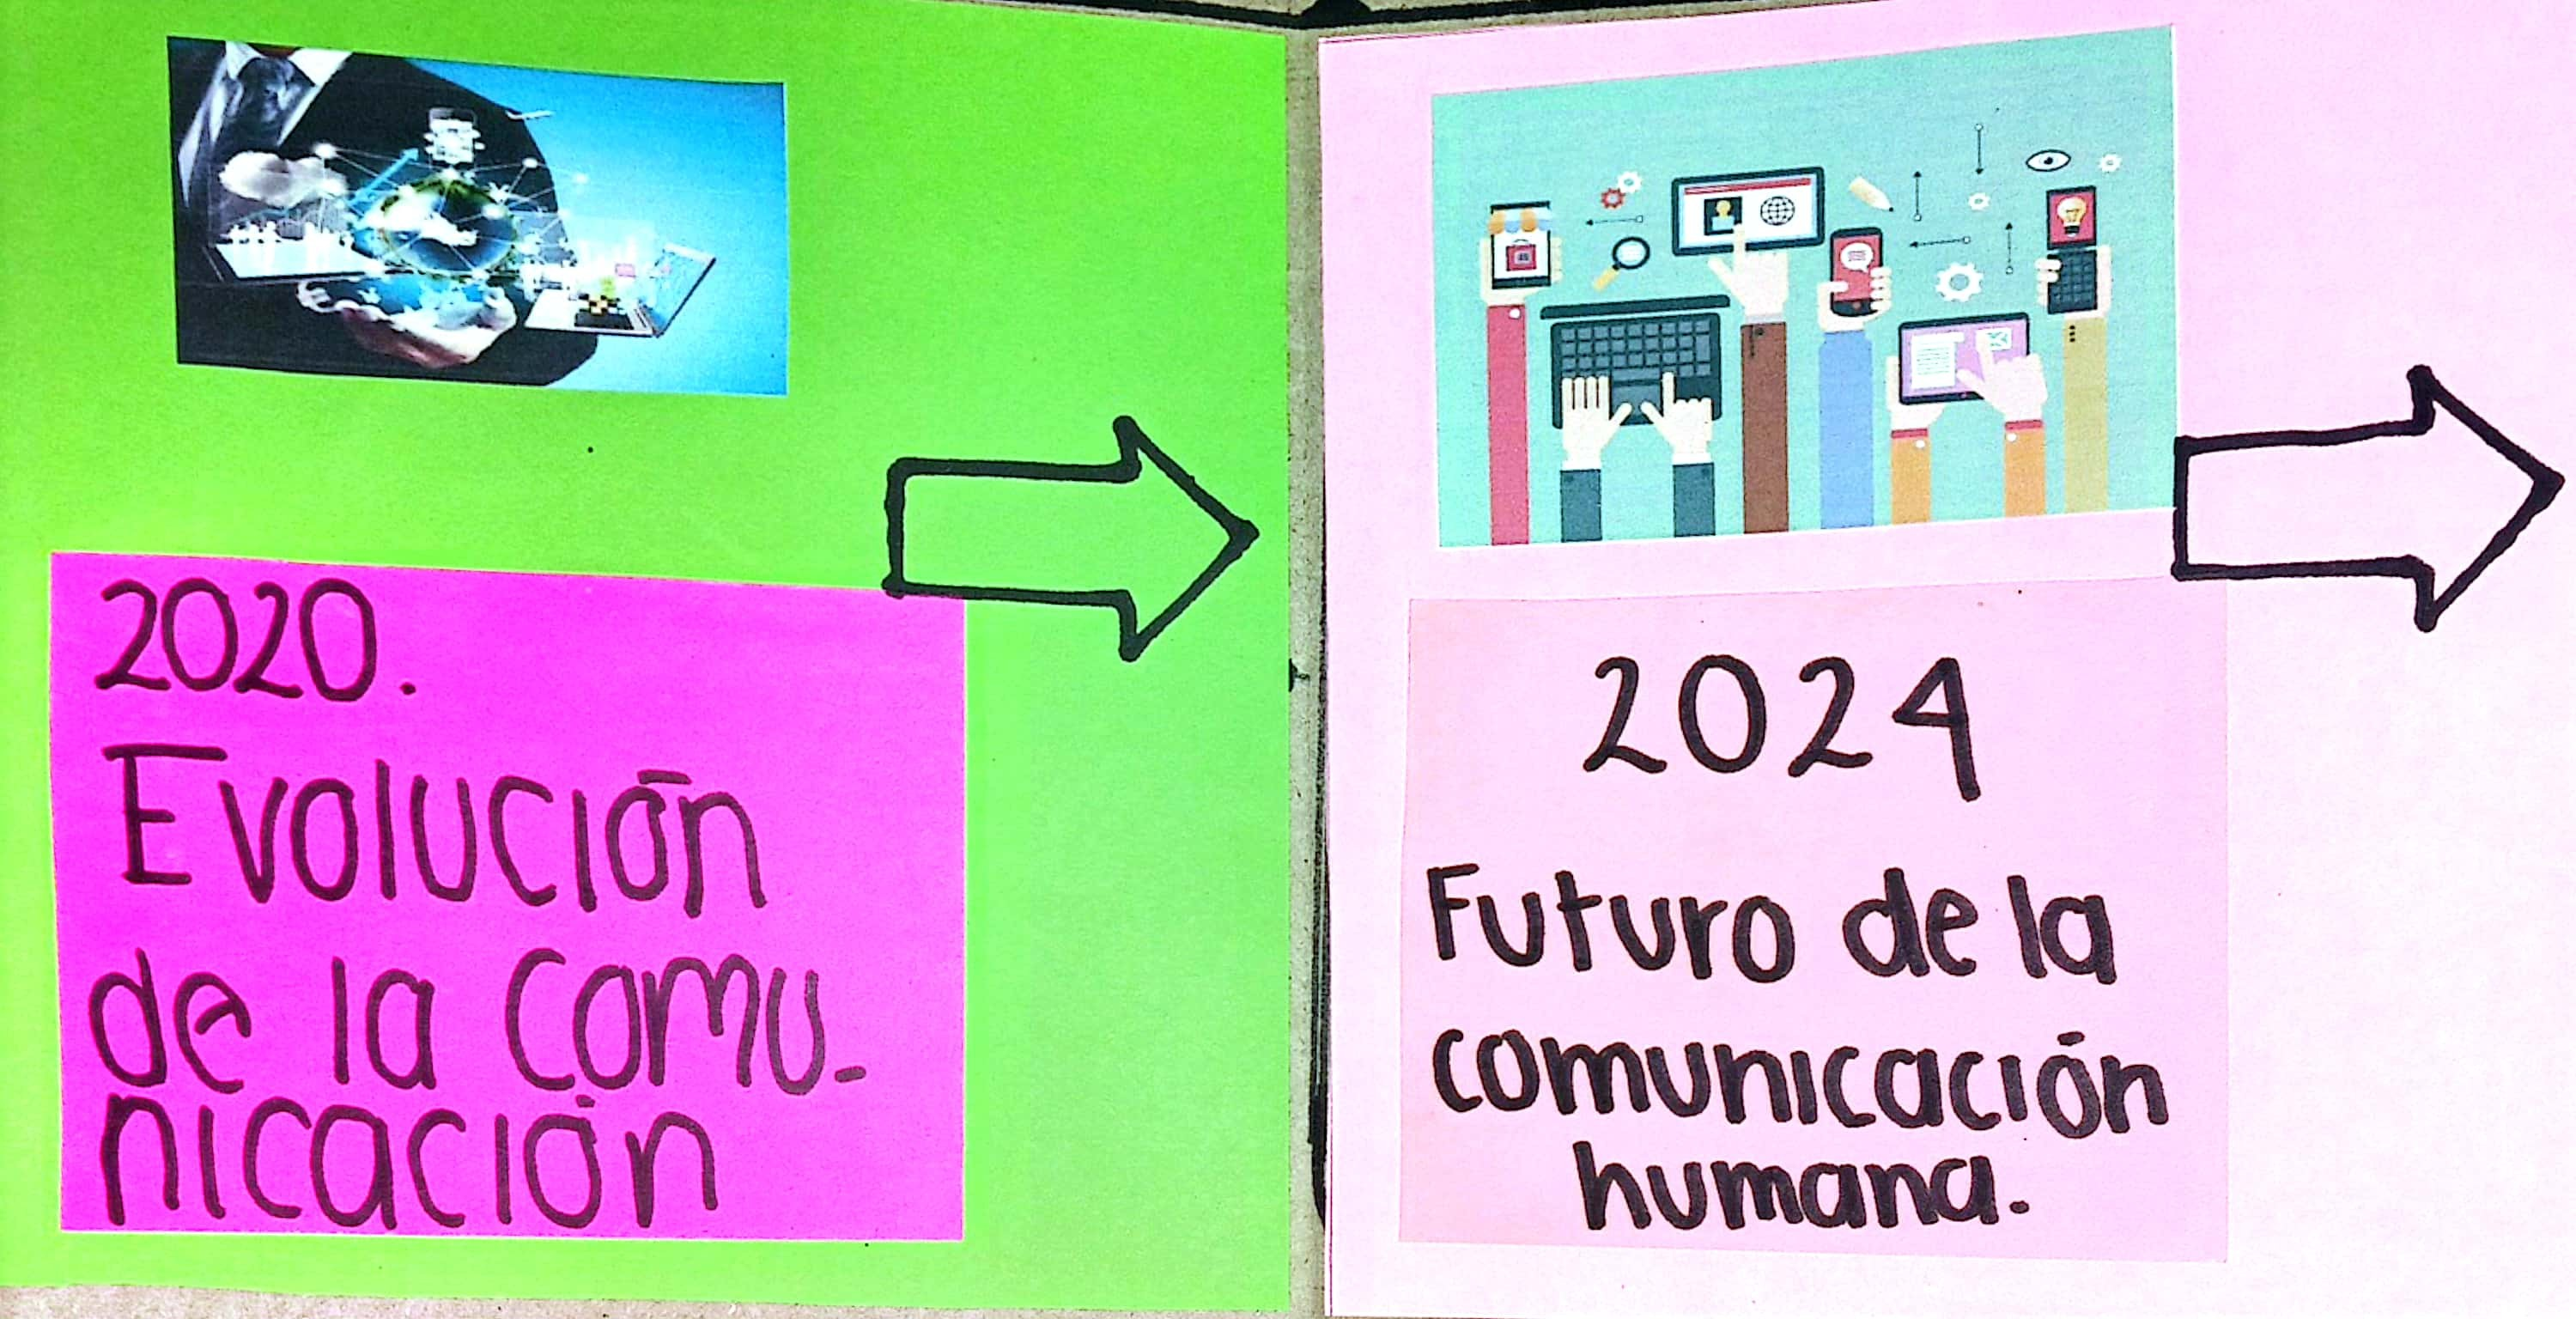 2020.
Evolución
de la Comu-
nicación
2024
Futuro de la
comunicación
humana.